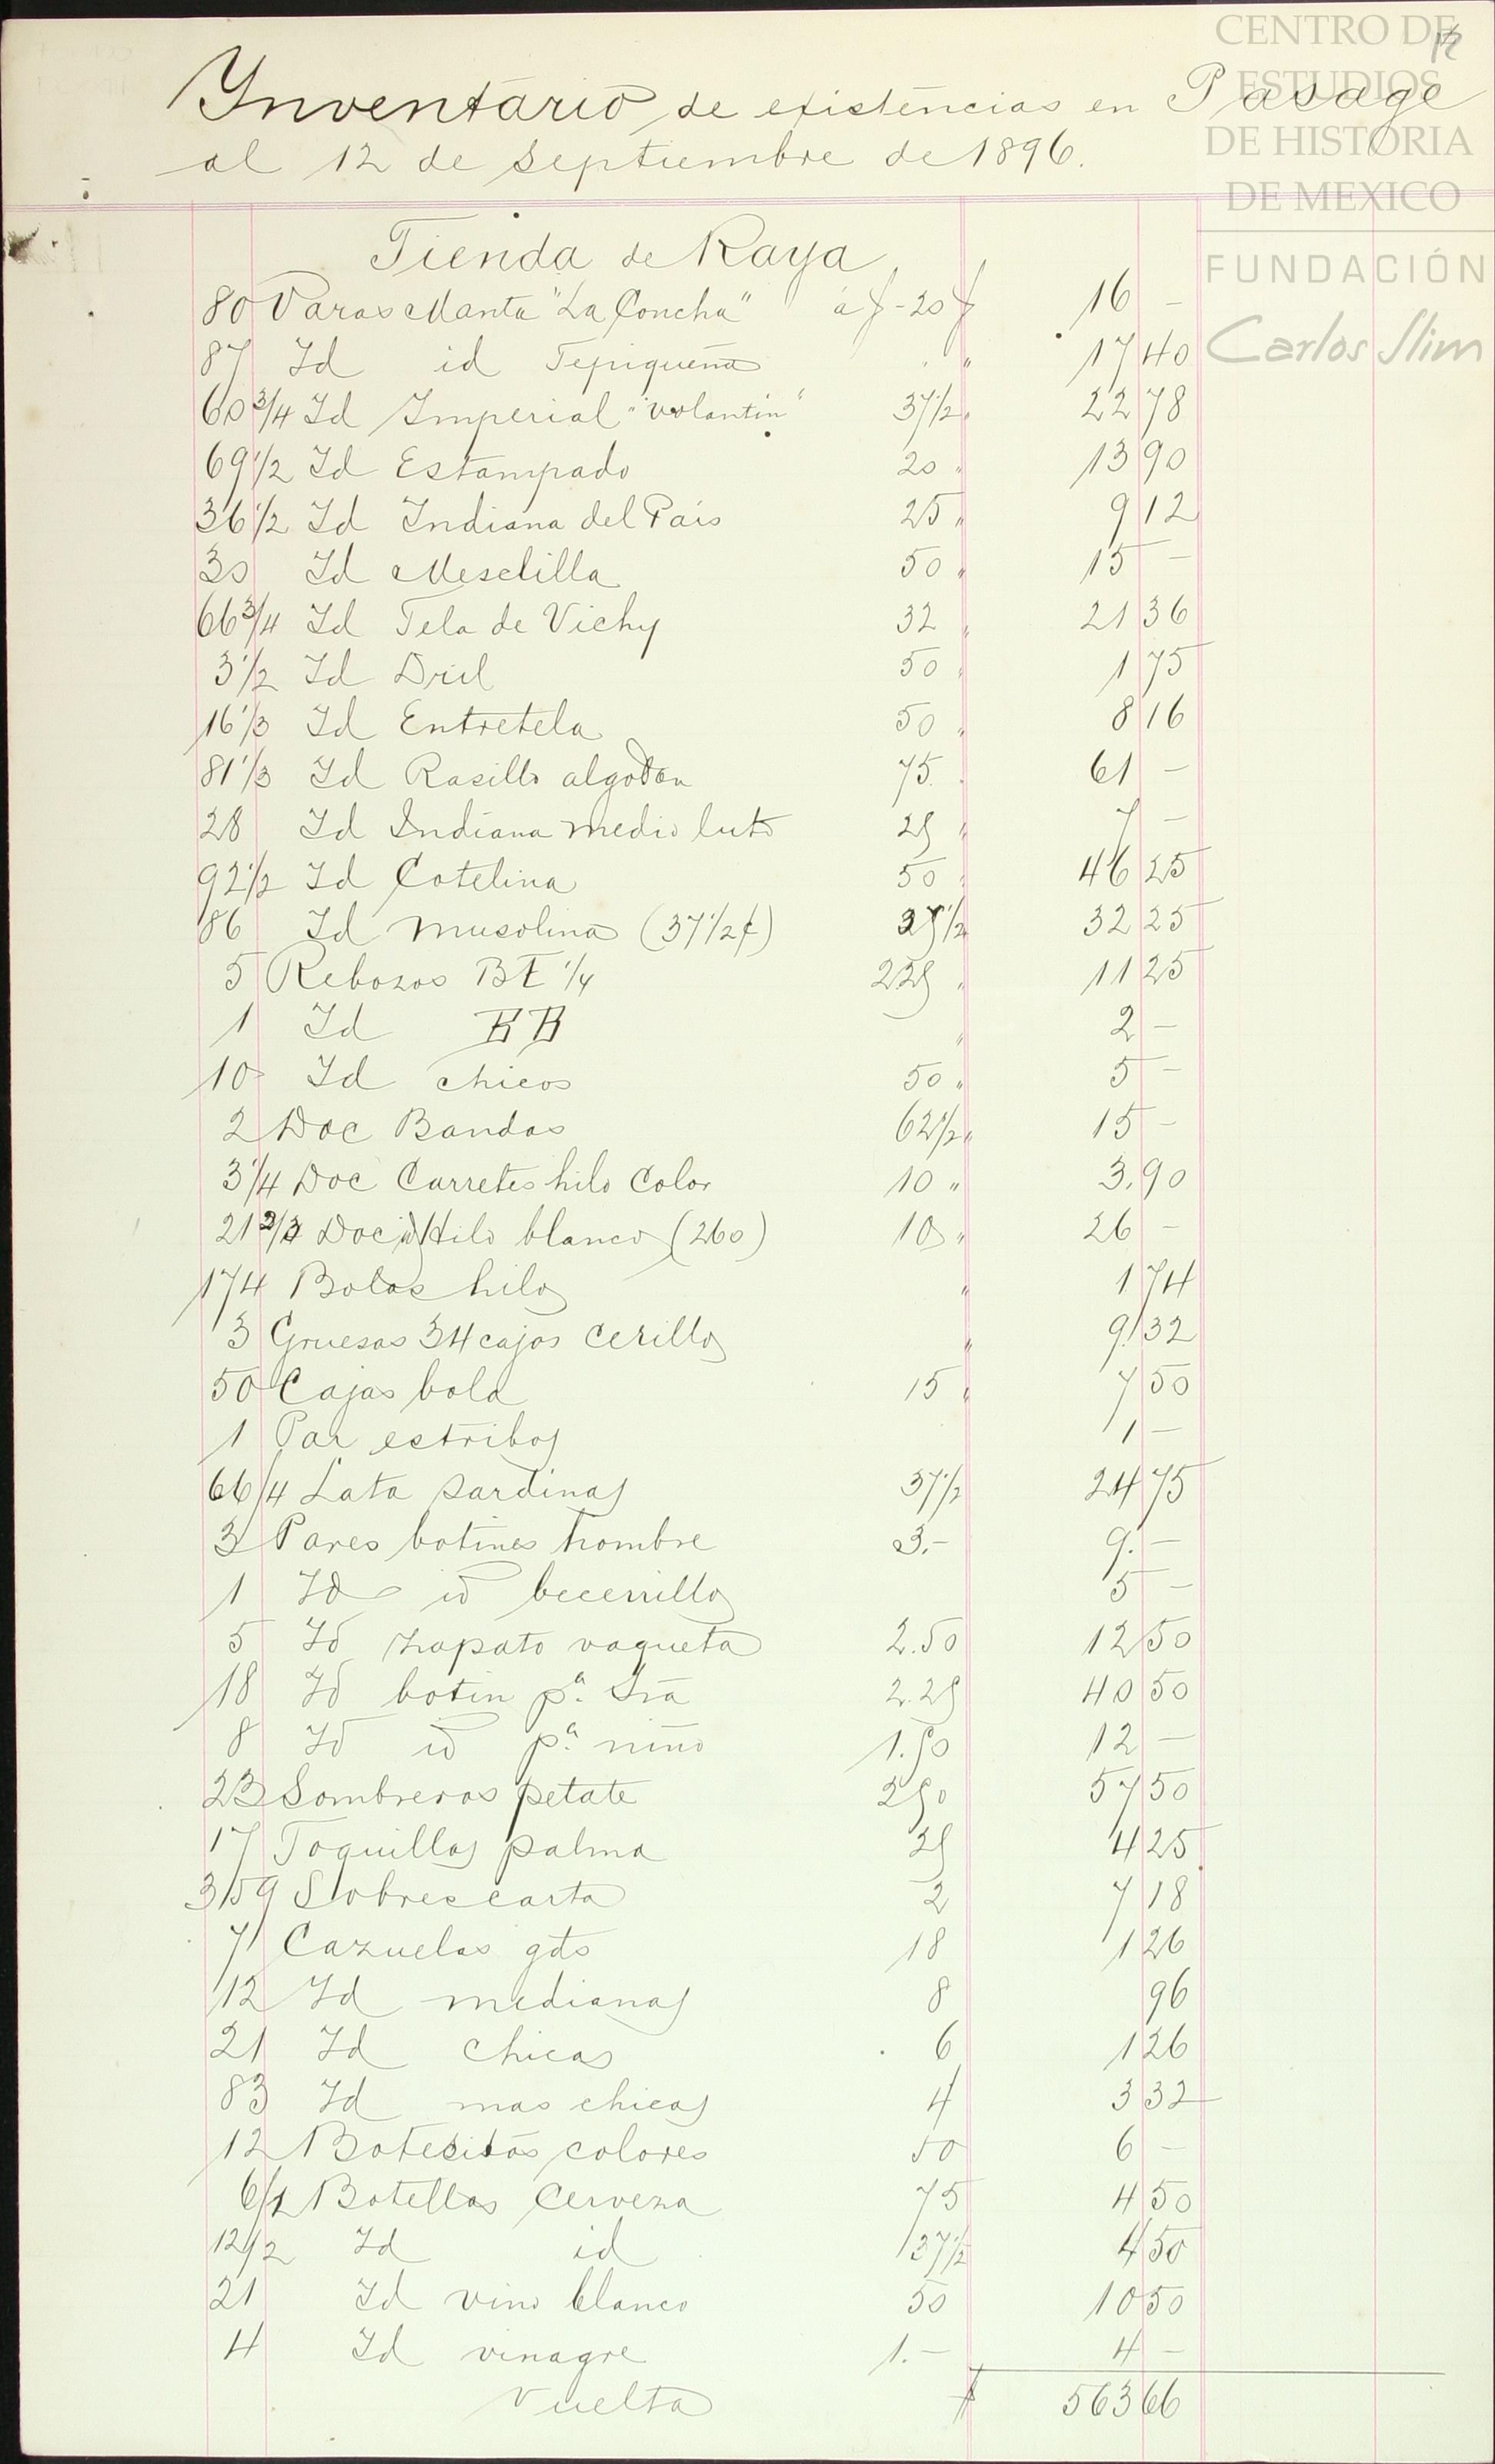 CENTRO DE
ESTUDIOS
DE HISTORIA
DE MEXICO
FUNDACIÓN
Carlos Slim
Ynventario de existencias en Pasage
al 12 de Septiembre de 1896.
Tienda de Raya
80 Varas Manta "La Concha" á $-20 $ 16 -
87 Id id Tepiqueña " 17 40
60 3/4 Id Imperial "volantin" 37 1/2 " 22 78
69 1/2 Id Estampado 20 " 13 90
36 1/2 Id Indiana del Pais 25 " 9 12
30 Id Mesclilla 50 " 15 -
66 3/4 Id Tela de Vichy 32 " 21 36
3 1/2 Id Dril 50 " 1 75
16 1/3 Id Entretela 50 " 8 16
81 1/3 Id Rasillo algodon 75 " 61 -
28 Id Indiana medio luto 25 " 7 -
92 1/2 Id Cotelina 50 " 46 25
86 Id Musolina (37 1/2 ¢) 37 1/2 32 25
5 Rebozos BT 1/4 225 " 11 25
1 Id BB " 2 -
10 Id chicos 50 " 5 -
2 Doc Bandas 62 1/2 " 15 -
3 1/4 Doc Carretes hilo Color 10 " 3.90
21 2/3 Doc id Hilo blanco (260) 10 " 26 -
174 Bolas hilo " 1 74
3 Gruesas 34 cajas Cerillos " 9.32
50 Cajas bola 15 " 7 50
1 Par estribos 1 -
66/4 Lata Sardinas 37 1/2 24 75
3 Pares botines hombre 3.- 9. -
1 Id id becerrillo 5 -
5 Id Zapato vaqueta 2.50 12 50
18 Id botin pa. Sra 2.25 40 50
8 Id id pa. niño 1.50 12 -
23 Sombreros petate 250 57 50
17 Toquillas palma 25 4 25
359 Sobres carta 2 7 18
7 Cazuelas gds 18 1 26
12 Id medianas 8 96
21 Id Chicas 6 1 26
83 Id mas chicas 4 3 32
12 Botecitos colores 50 6 -
6/1 Botellas Cerveza 75 4 50
12/2 Id id 37 1/2 4 50
21 Id vino blanco 50 10 50
4 Id vinagre 1.- 4 -
Vuelta $ 563 66